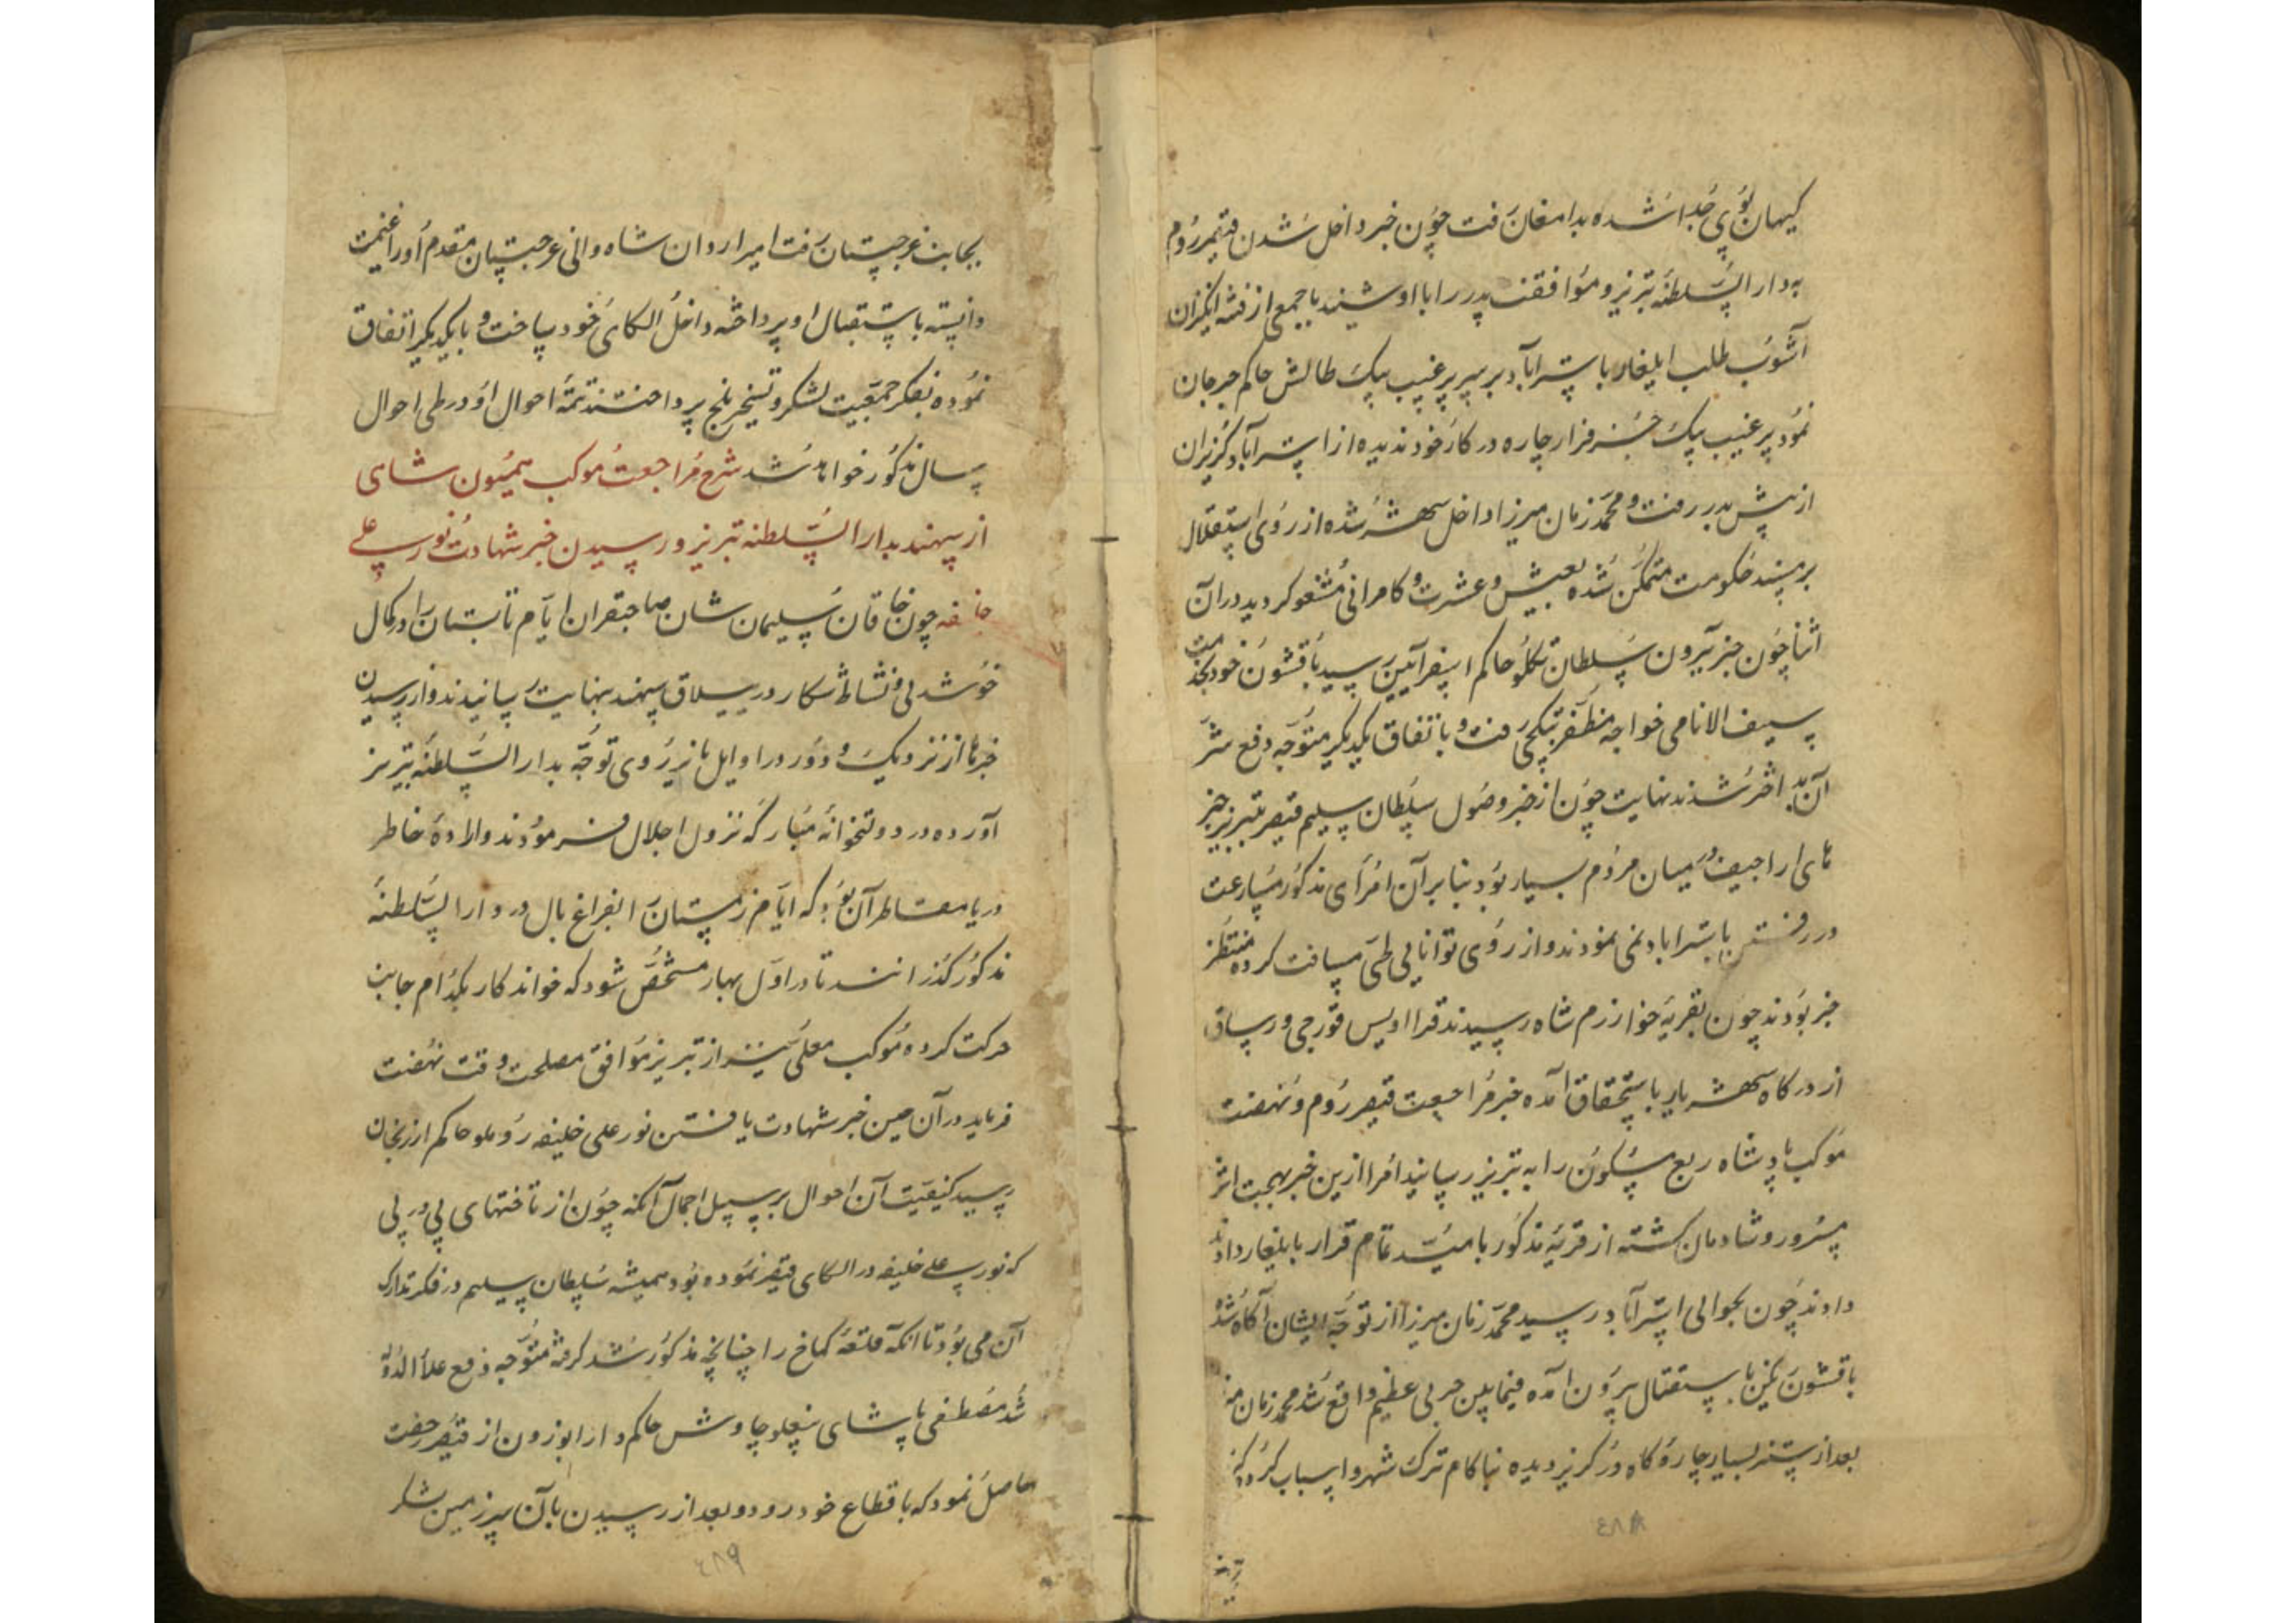 کیهان پوی جدا شده بدامغان رفت چون خبر داخل شدن قیصر روم
به دار السلطنه تبریز و موافقت پدر را با او شنید با جمعی از فتنه انگیزان
آشوب طلب ایلغار باسترآباد بر سر پیر غیب بیک طالش حاکم جرجان
نمود پیر غیب بیک جز فرار چاره در کار خود ندیده از استرآباد گریزان
از پیش بدر رفت و محمد زمان میرزا داخل شهر شده از روی استقلال
بر مسند حکومت متمکن شده بعیش و عشرت و کامرانی مشغول گردید در آن
اثنا چون خبر بیرون سلطان تکلو حاکم اسفرآیین رسید با قشون خود بخدمت
سیف الانامی خواجه مظفر بتکچی رفت و باتفاق یکدیگر متوجه دفع شر
آن بد اختر شدند نهایت چون از خبر وصول سلطان سلیم قیصر بتبریز خبر
های اراجیف در میان مردم بسیار بود بنا بر آن امرای مذکور مسارعت
در رفتن باسترآباد نمی نمودند و از روی توانایی طی مسافت کرده منتظر
خبر بودند چون بقریه خوارزم شاه رسیدند قرا اویس قورچی ورساق
از درگاه شهریار باستحقاق آمده خبر مراجعت قیصر روم و نهضت
موکب پادشاه ربع مسکون را به تبریز رسانید امرا ازین خبر بهجت اثر
مسرور و شادمان گشته از قریه مذکور با میسد تمام قرار بایلغار دادند
دادند چون بحوالی استرآباد رسید محمد زمان میرزا از توجه ایشان آگاه شده
با قشون باستقبال بیرون آمده فیمابین حربی عظیم واقع شد محمد زمان میرزا
بعد از ستیز بسیار چاره کار در گریز دیده ناکام ترک شهر و اسباب کرده
٤٨٨
بجانب غرجستان رفت امیر اردوان شاه والی غرجستان مقدم او را غنیمت
دانسته باستقبال او پرداخته داخل الکای خود ساخت و با یکدیگر اتفاق
نموده بفکر جمعیت لشکر و تسخیر بلخ پرداختند تتمه احوال او در طی احوال
سال مذکور خواهد شد شرح مراجعت موکب همیون شاهی
از سهند بدار السلطنه تبریز و رسیدن خبر شهادت نور علی
خلیفه چون خاقان سلیمان شان صاحبقران ایام تابستان را در کمال
خوشدلی و نشاط شکار در ییلاق سهند بنهایت رسانیدند و از رسیدن
خبرها از نزدیک و دور در اوایل پائیز روی توجه بدار السلطنه تبریز
آورده در دولتخانه مبارکه نزول اجلال فرمودند و اراده خاطر
دریا مقاطر آن بود که ایام زمستان را بفراغ بال در دار السلطنه
مذکور گذرانند تا در اول بهار مشخص شود که خواندکار بکدام جانب
حرکت کرده موکب معلی نیز از تبریز موافق مصلحت وقت نهضت
فرماید در آن حین خبر شهادت یافتن نور علی خلیفه روملو حاکم ارزنجان
رسید کیفیت آن احوال بر سبیل اجمال آنکه چون از تاختهای پی در پی
که نور علی خلیفه در الکای قیصر نموده بود همیشه سلطان سلیم در فکر تدارک
آن می بود تا آنکه قلعه کماخ را چنانچه مذکور شد گرفته متوجه دفع علاء الدوله
شد مصطفی پاشای بیغلو چاوش حاکم دارابوزون از قیصر رخصت
حاصل نمود که باقطاع خود رود و بعد از رسیدن بآن سرزمین لشکر
٤٨٩